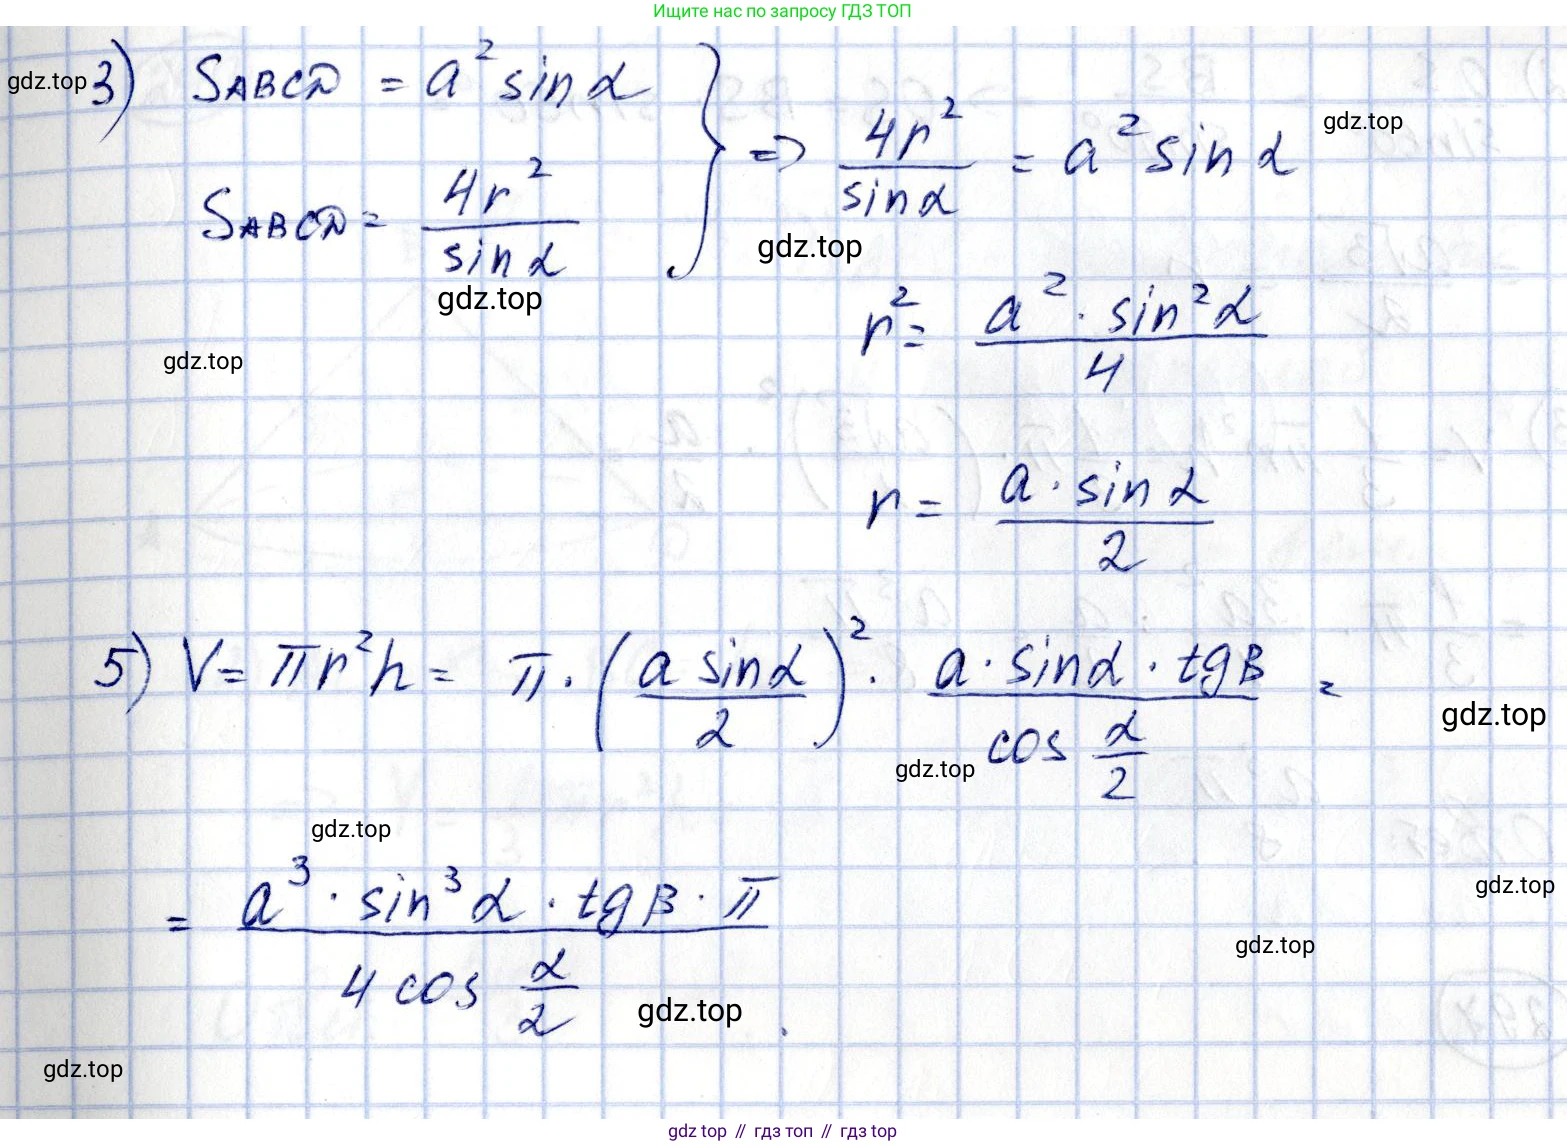 Ищите нас по запросу ГДЗ ТОП
gdz.top
3) SABCD = a² sin α
SABCD = 4r² / sin α
} => 4r² / sin α = a² sin α
gdz.top
gdz.top
gdz.top
gdz.top
r² = a² · sin² α / 4
r = a · sin α / 2
5) V = πr²h = π · (a sin α / 2)² · a · sin α · tg β / cos α/2 =
gdz.top
gdz.top
gdz.top
= a³ · sin³ α · tg β · π / 4 cos α/2 .
gdz.top
gdz.top
gdz.top
gdz.top
gdz top // гдз топ // gdz top